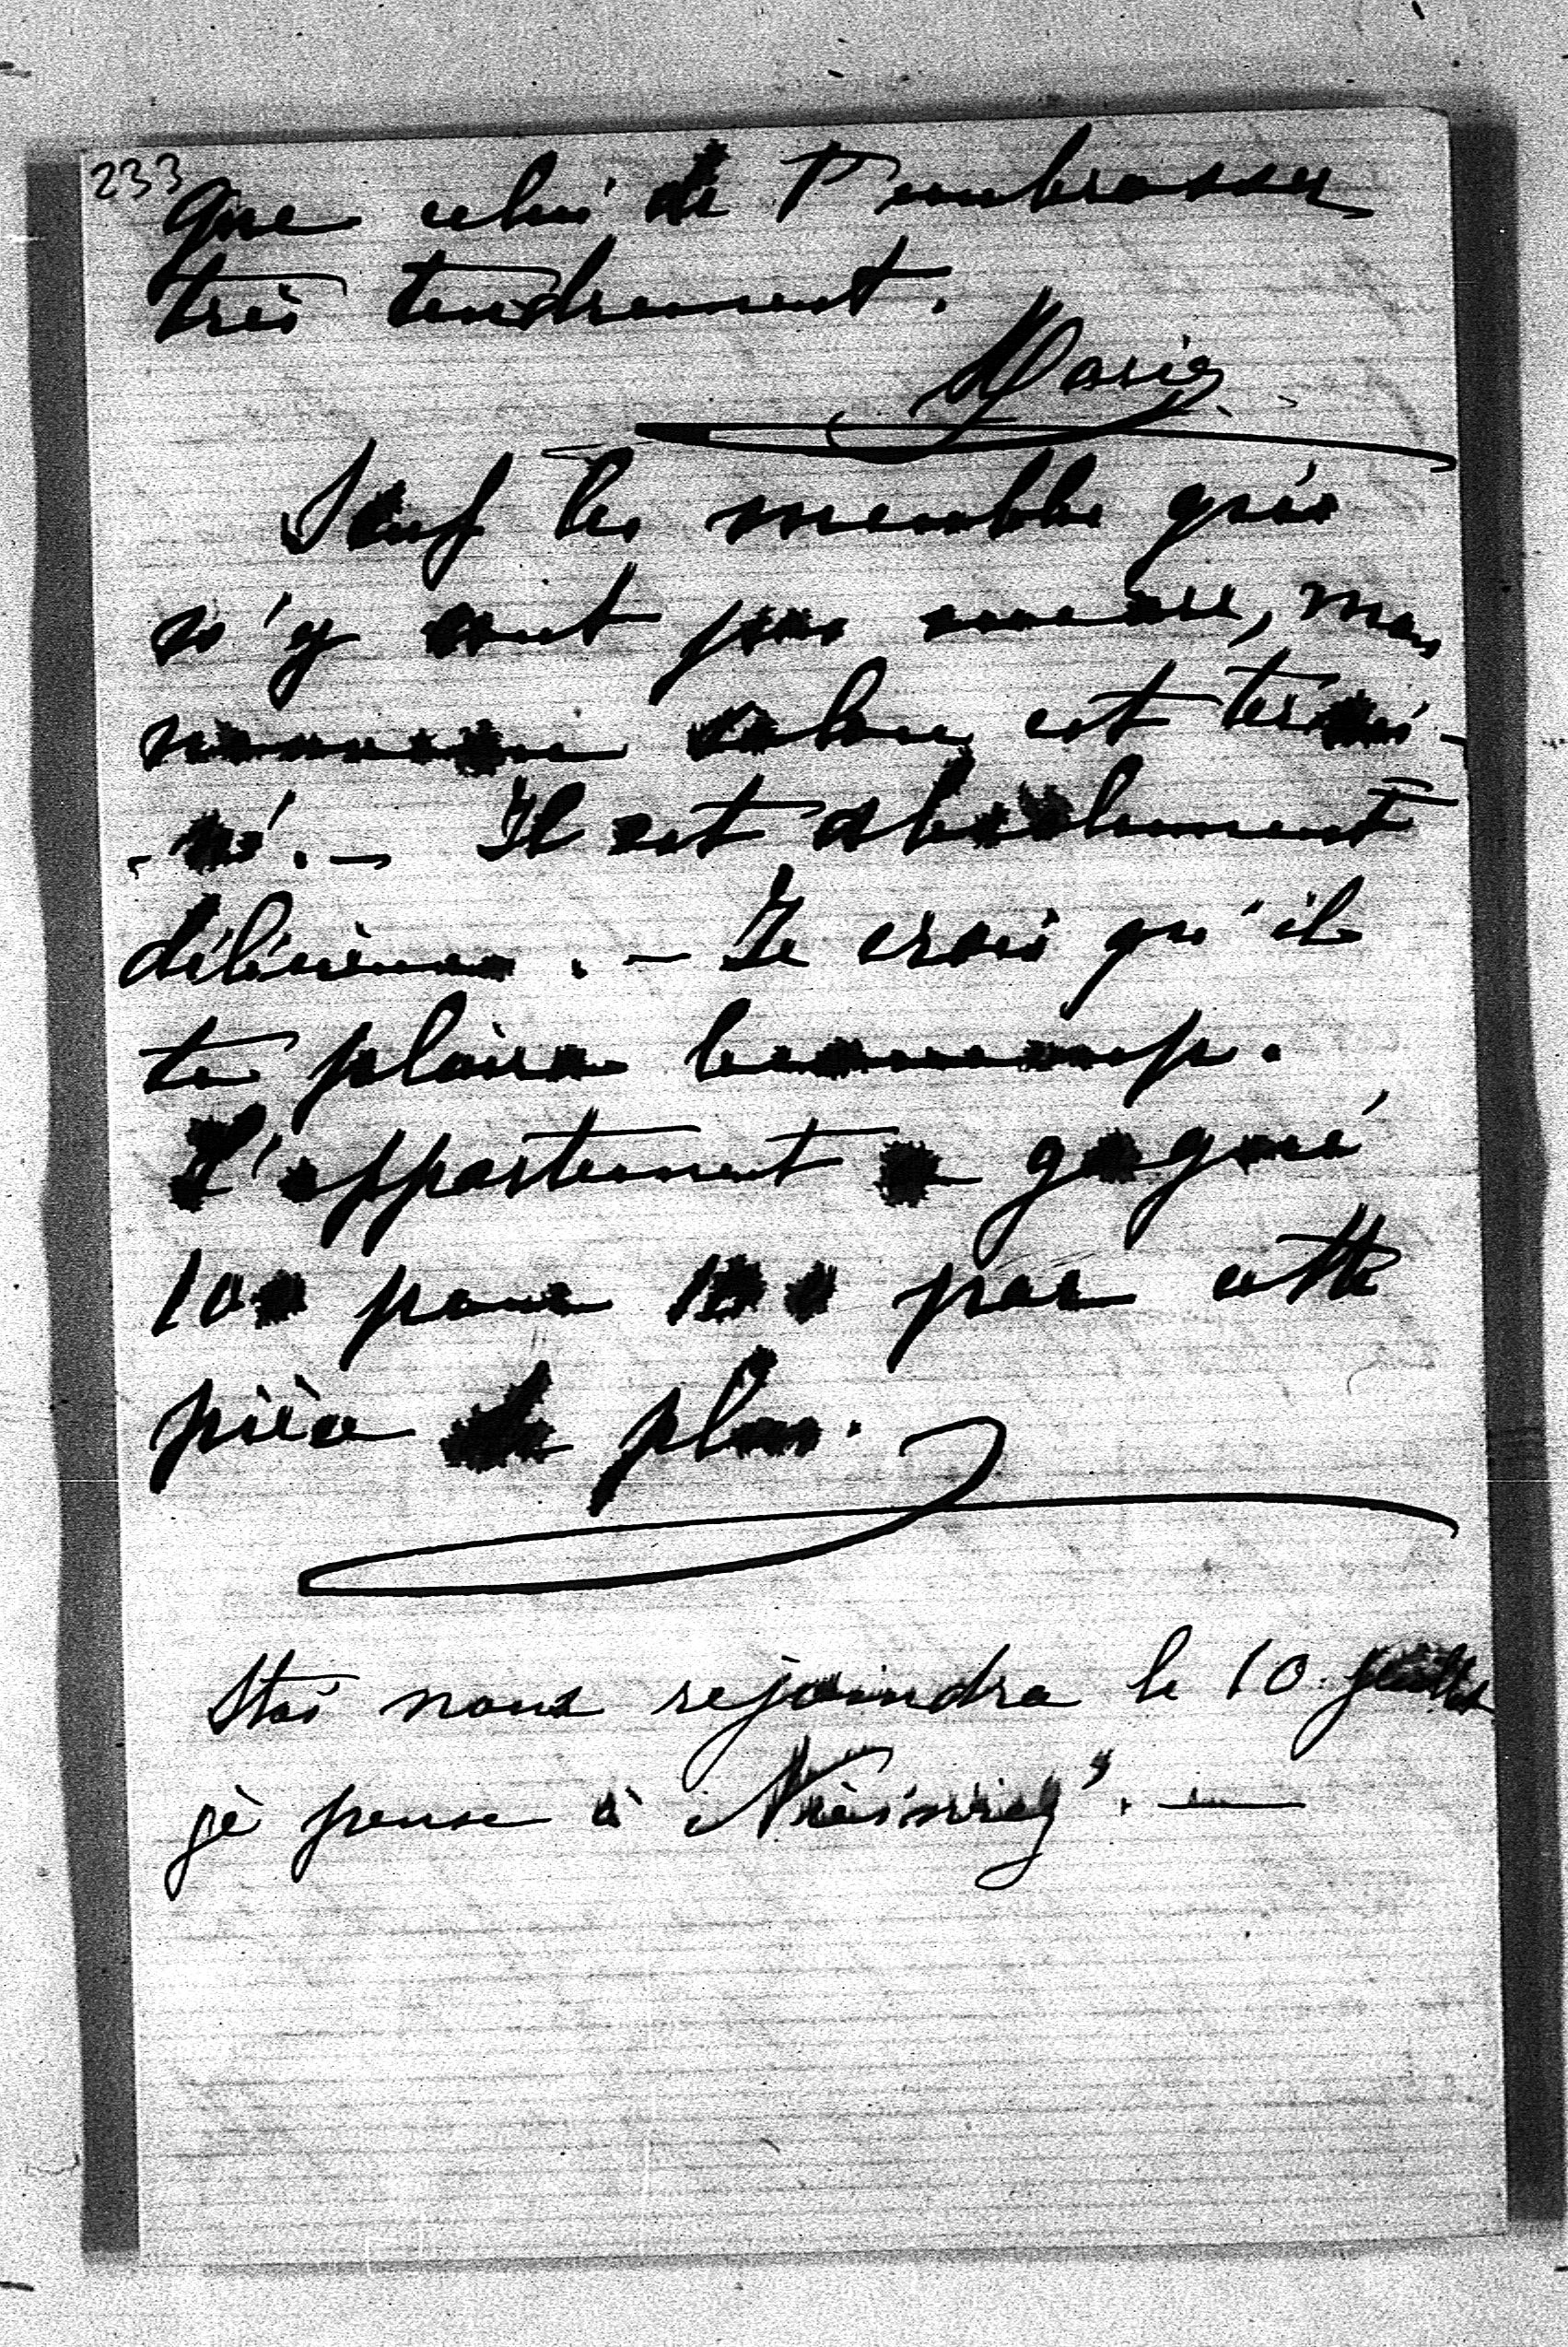 233
que celui de t'embrasser
très tendrement.
Marie
Sauf les meubles qui
n'y sont pas encore, mon
nouveau salon est termi-
-né. — Il est absolument
délicieux. — Je crois qu'il
te plaira beaucoup.
L'appartement a gagné
100 pour 100 par cette
pièce de plus.
Staś nous rejoindra le 10 juillet
je pense à Nieśwież. —